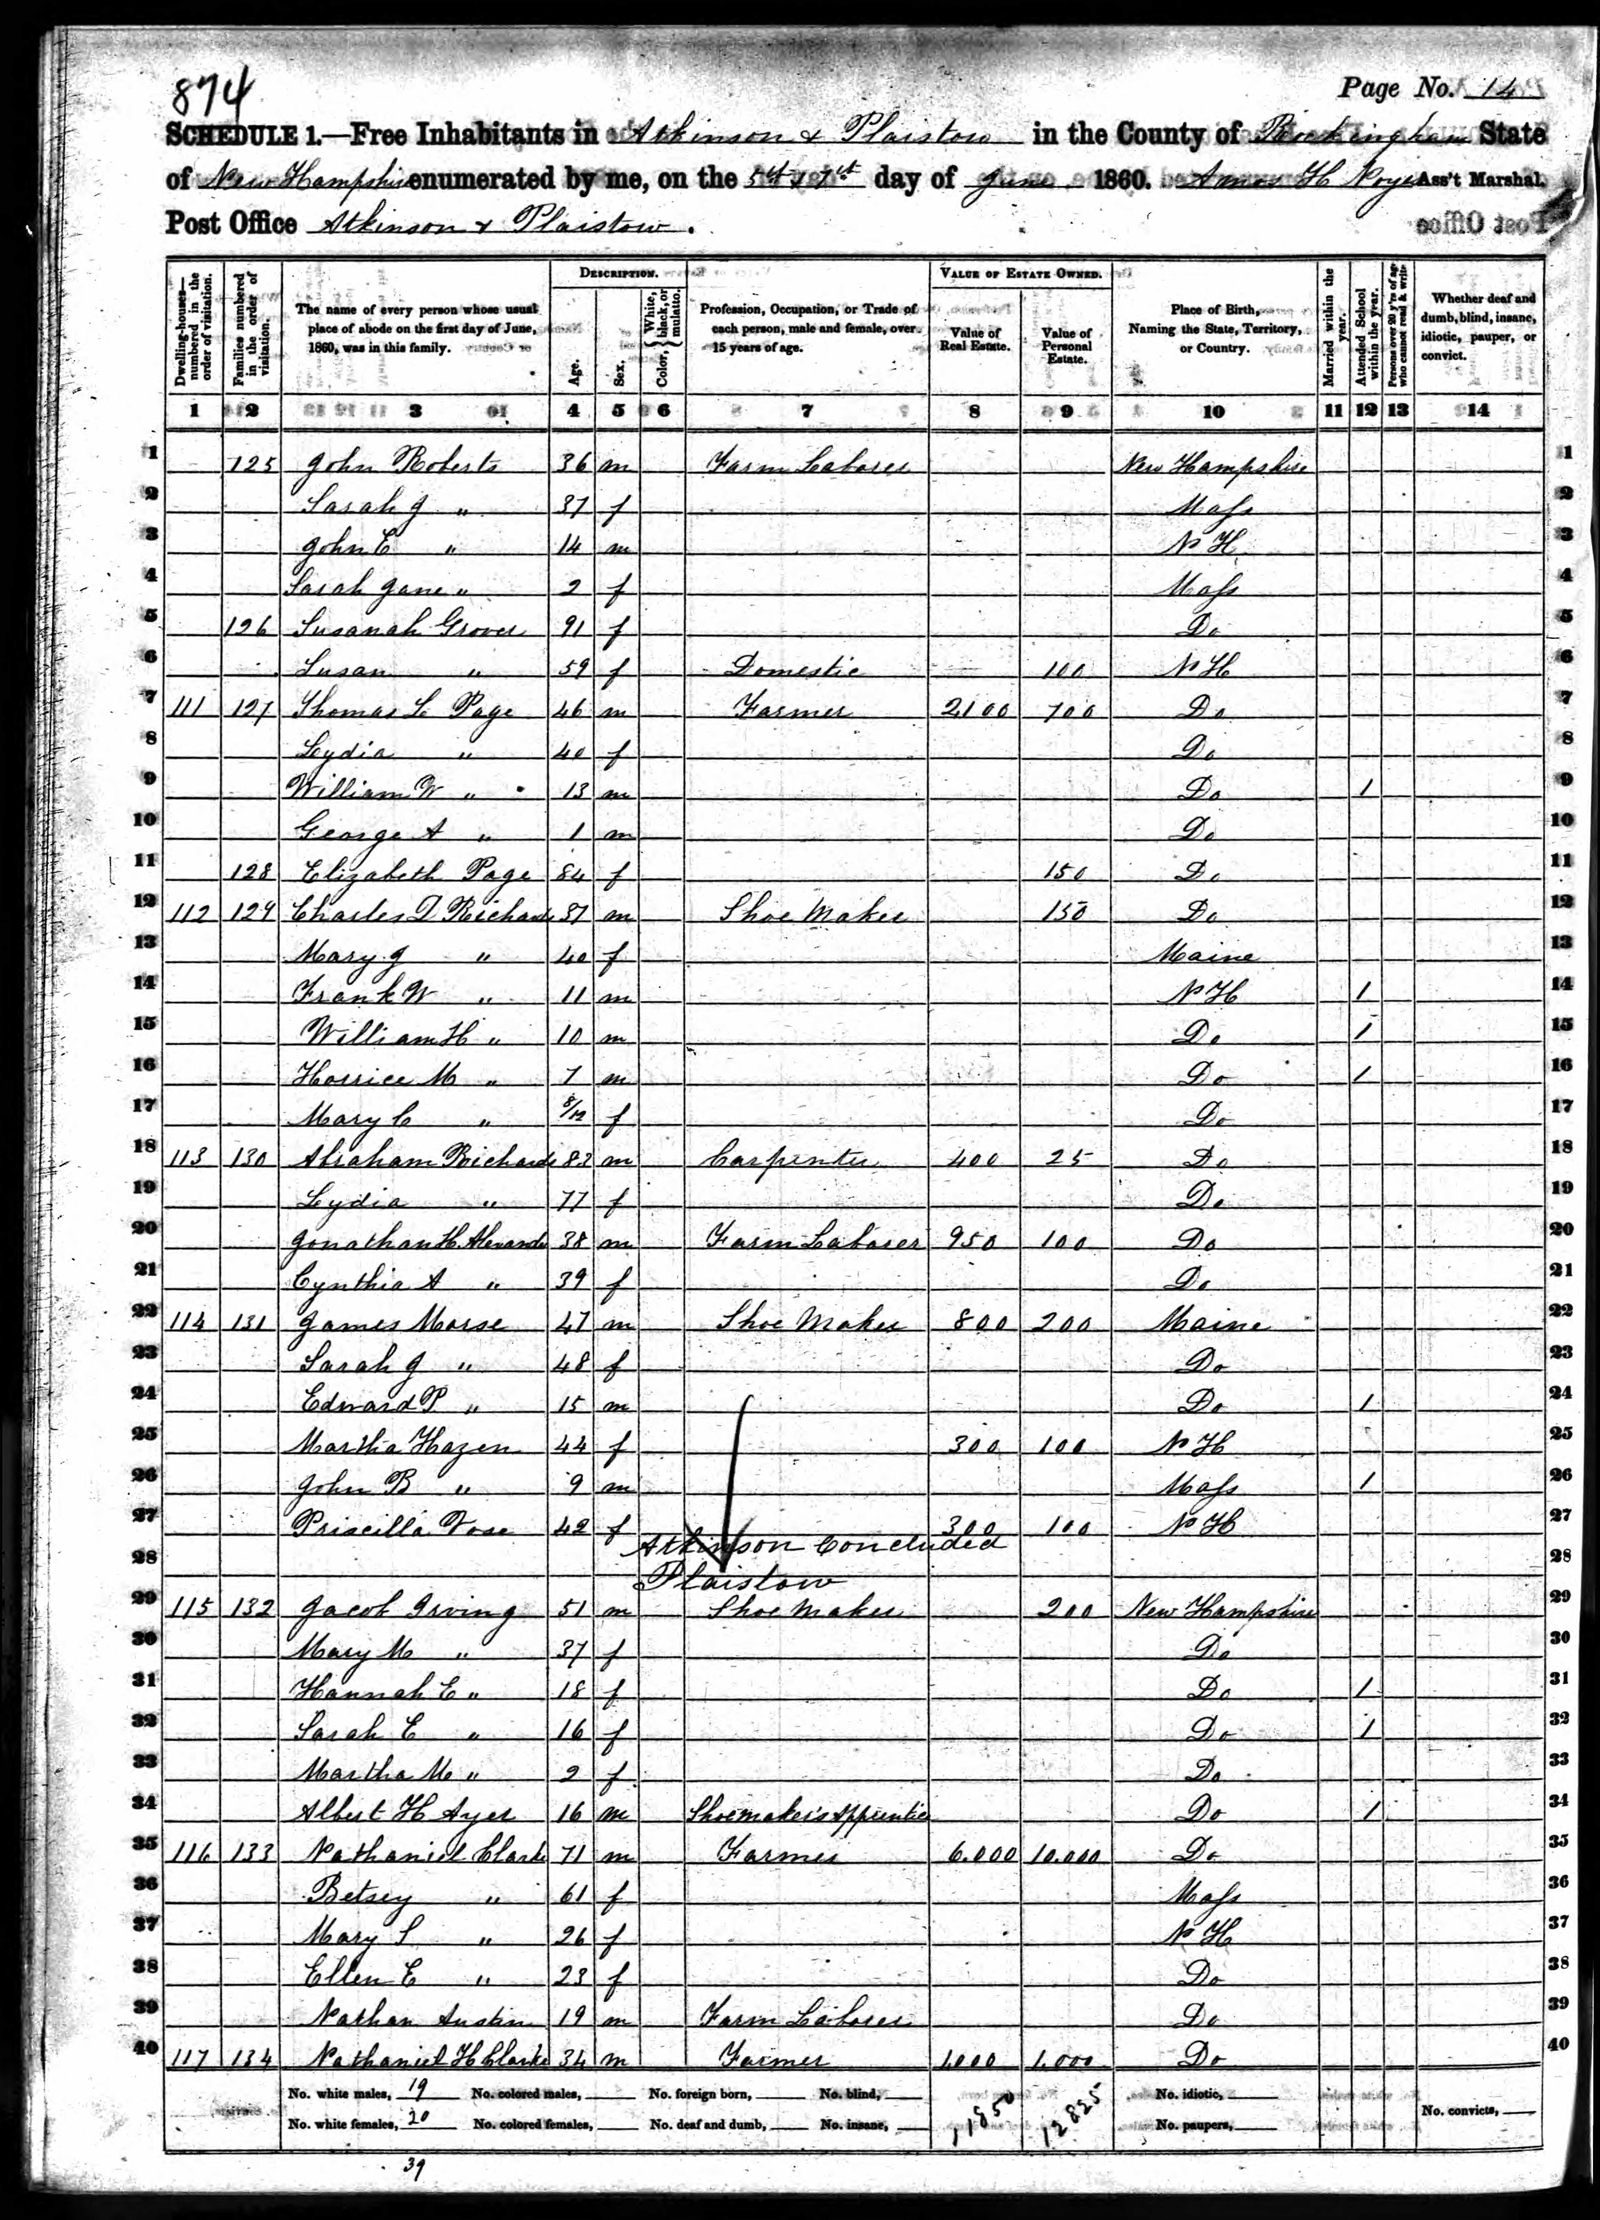 874
Page No. 14
SCHEDULE 1.—Free Inhabitants in Atkinson & Plaistow in the County of Rockingham State
of New Hampshire enumerated by me, on the 5th & 7th day of June 1860. Amos H Noyes Ass't Marshal.
Post Office Atkinson & Plaistow.
Dwelling-houses—numbered in the order of visitation.
Families numbered in the order of visitation.
The name of every person whose usual place of abode on the first day of June, 1860, was in this family.
DESCRIPTION.
Age.
Sex.
Color, White, black, or mulatto.
Profession, Occupation, or Trade of each person, male and female, over 15 years of age.
VALUE OF ESTATE OWNED.
Value of Real Estate.
Value of Personal Estate.
Place of Birth, Naming the State, Territory, or Country.
Married within the year.
Attended School within the year.
Persons over 20 y'rs of age who cannot read & write
Whether deaf and dumb, blind, insane, idiotic, pauper, or convict.
1 2 3 4 5 6 7 8 9 10 11 12 13 14
1 125 John Roberts 36 m Farm Laborer New Hampshire 1
2 Sarah J " 37 f Mass 2
3 John E " 14 m N H 3
4 Sarah Jane " 2 f Mass 4
5 126 Susanah Grover 91 f Do 5
6 Susan " 59 f Domestic 100 N H 6
7 111 127 Thomas L Page 46 m Farmer 2,100 700 Do 7
8 Lydia " 40 f Do 8
9 William W " 13 m Do 1 9
10 George A " 1 m Do 10
11 128 Elizabeth Page 84 f 150 Do 11
12 112 129 Charles D Richards 37 m Shoe Maker 150 Do 12
13 Mary J " 40 f Maine 13
14 Frank W " 11 m N H 1 14
15 William H " 10 m Do 1 15
16 Horrice M " 7 m Do 1 16
17 Mary C " 8/12 f Do 17
18 113 130 Abraham Richards 83 m Carpenter 400 25 Do 18
19 Lydia " 77 f Do 19
20 Jonathan H. Alexande 38 m Farm Laborer 950 100 Do 20
21 Cynthia A " 39 f Do 21
22 114 131 James Morse 47 m Shoe Maker 800 200 Maine 22
23 Sarah J " 48 f Do 23
24 Edward P " 15 m Do 1 24
25 Martha Hazen 44 f 300 100 N H 25
26 John B " 9 m Mass 1 26
27 Priscilla Vose 42 f 300 100 N H 27
Atkinson Concluded
28 28
Plaistow
29 115 132 Jacob Irving 51 m Shoe Maker 200 New Hampshire 29
30 Mary M " 37 f Do 30
31 Hannah E " 18 f Do 1 31
32 Sarah E " 16 f Do 1 32
33 Martha M " 2 f Do 33
34 Albert H Ayer 16 m Shoemaker's Apprentice Do 1 34
35 116 133 Nathaniel Clarke 71 m Farmer 6.000 10.000 Do 35
36 Betsey " 61 f Mass 36
37 Mary S " 26 f N H 37
38 Ellen E " 23 f Do 38
39 Nathan Austin 19 m Farm Laborer Do 39
40 117 134 Nathaniel H Clarke 34 m Farmer 1.000 1.000 Do 40
No. white males, 19 No. colored males, No. foreign born, No. blind, 11850 12825 No. idiotic,
No. white females, 20 No. colored females, No. deaf and dumb, No. insane, No. paupers, No. convicts,
39